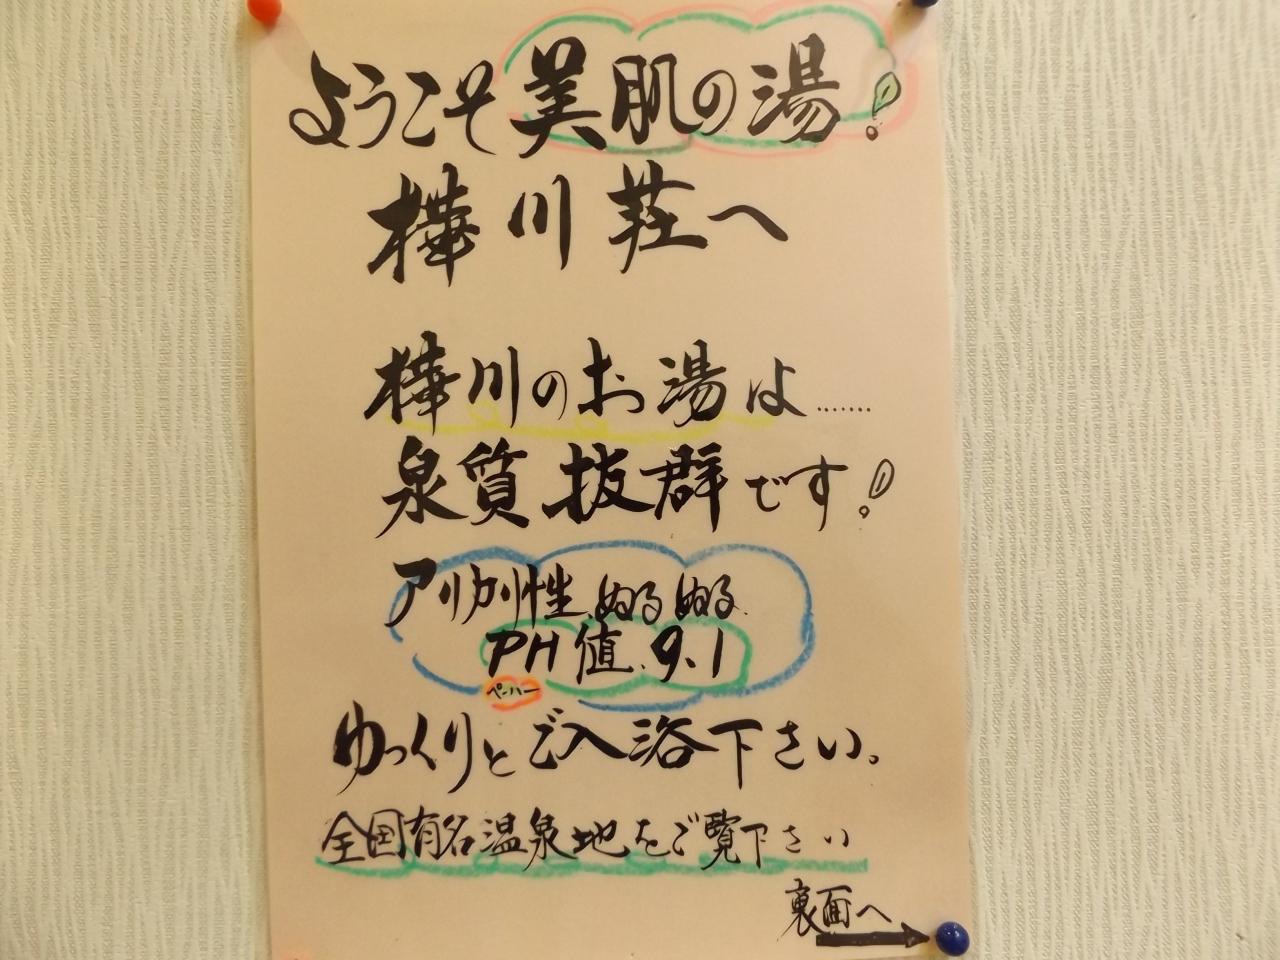 ようこそ美肌の湯!
樺川荘へ
樺川のお湯は……
泉質抜群です!
アリカリ性、ぬるぬる
PH値、9、1
ペーハー
ゆっくりとご入浴下さい。
全国有名温泉地をご覧下さい
裏面へ